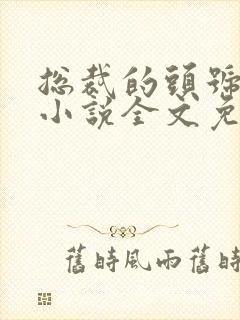 總裁的頭號
小說全文免
舊時風雨舊時